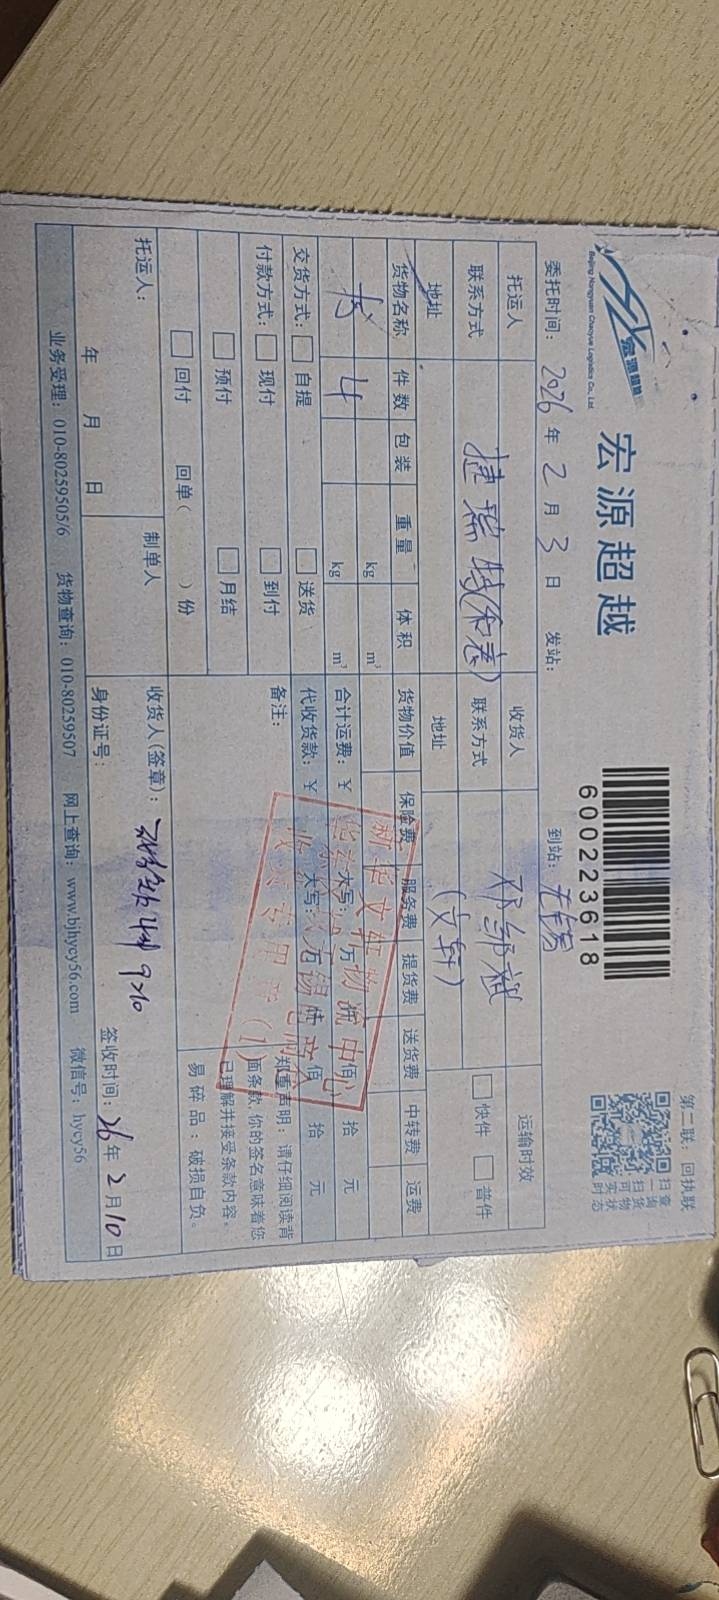 第二联：回执联
宏源超越
宏源超越
Beijing Hongyuan Chaoyue Logistics Co., Ltd
600223618
扫一扫可实时
查询货物状态
委托时间：2026年2月3日 发站： 到站：无锡
托运人 收货人 运输时效
联系方式 捷瑞特(和志) 联系方式 快件 普件
地址 地址 (文轩)
货物名称 件数 包装 重量 体积 货物价值 保险费 服务费 提货费 送货费 中转费 运费
书 4 kg m³
kg m³ 合计运费：¥ 大写： 万 仟 佰 拾 元
交货方式： 自提 送货 代收货款：¥ 大写： 万 仟 佰 拾 元
付款方式： 现付 到付 备注：
预付 月结
回付 回单( )份
郑重声明：请仔细阅读背
面条款，你的签名意味着您
已理解并接受条款内容。
易碎品：破损自负。
新华文轩物流中心
收货专用章(1)
托运人： 制单人 收货人(签章)：
年 月 日 身份证号： 签收时间：26年2月10日
业务受理：010-80259505/6 货物查询：010-80259507 网上查询：www.bjhycy56.com 微信号：hycy56